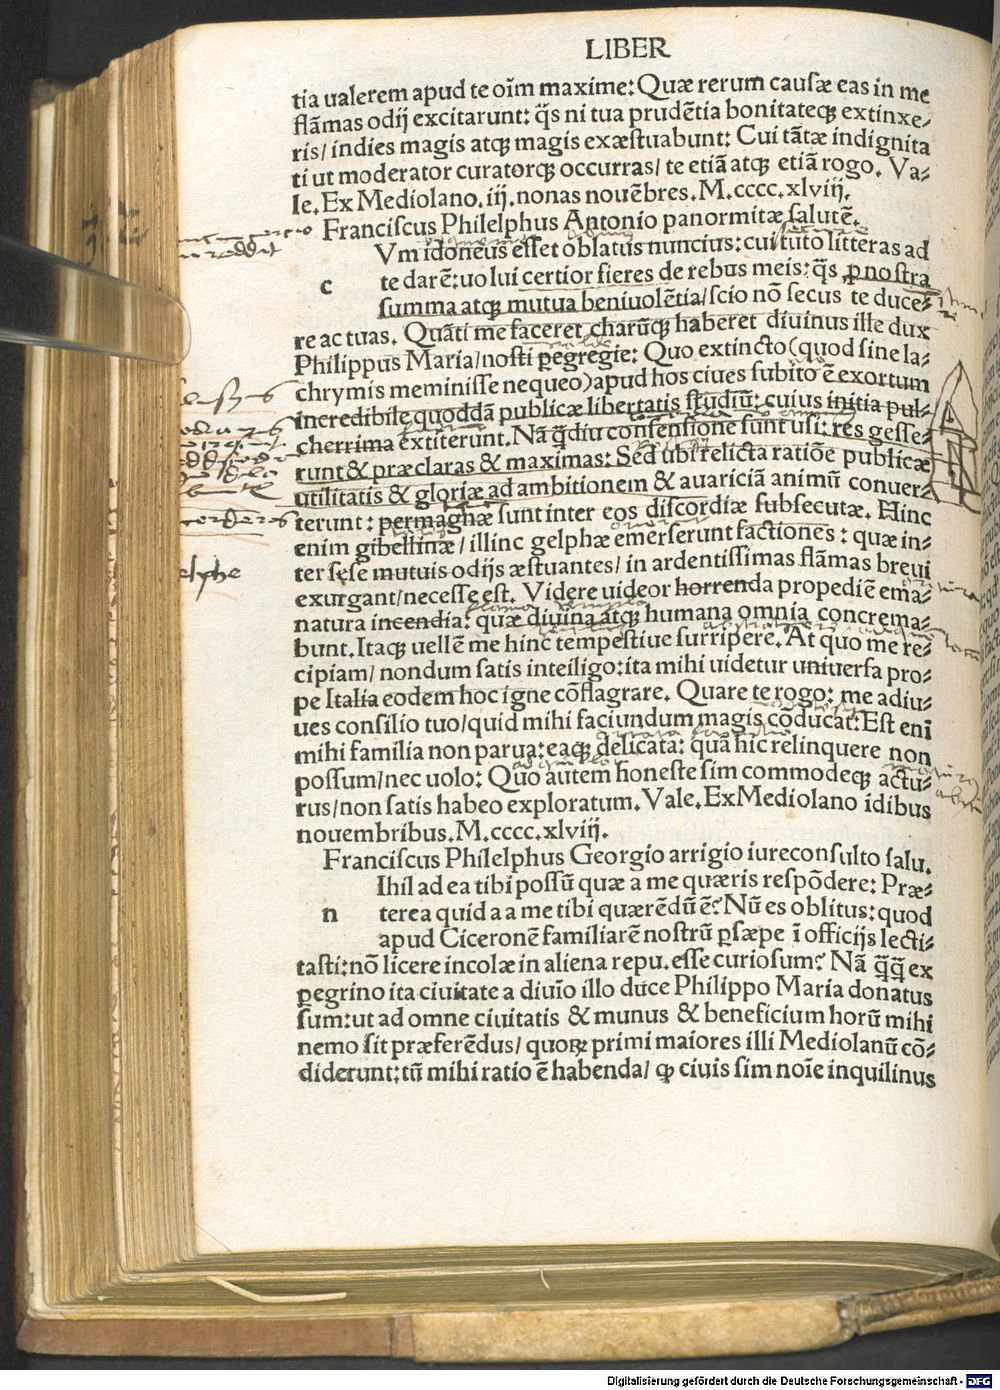 LIBER
tia ualerem apud te oīm maxime: Quæ rerum causæ eas in me
flāmas odij excitarunt: q̄s ni tua prudētia bonitateqꝫ extinxe⸗
ris/ indies magis atqꝫ magis exæstuabunt: Cui tātæ indignita
ti ut moderator curatorqꝫ occurras/ te etiā atqꝫ etiā rogo. Va⸗
le. Ex Mediolano. iij. nonas nouēbres. M.cccc.xlviij.
Franciscus Philelphus Antonio panormitæ salutē.
Vm idoneus esset oblatus nuncius: cui tuto litteras ad
c te darē: uolui certior fieres de rebus meis: q̄s ꝓ nostra
summa atqꝫ mutua beniuolētia/ scio nō secus te duce⸗
re ac tuas. Quāti me faceret charūqꝫ haberet diuinus ille dux
Philippus Maria/ nosti ꝑegregie: Quo extincto (quod sine la⸗
chrymis meminisse nequeo) apud hos ciues subito ē exortum
incredibile quoddā publicæ libertatis studiū: cuius initia pul⸗
cherrima extiterunt. Nā q̄diu consensione sunt usi: res gesse⸗
runt & præclaras & maximas: Sed ubi relicta ratiōe publicæ
utilitatis & gloriæ ad ambitionem & auariciā animū conuer⸗
terunt: permagnæ sunt inter eos discordiæ subsecutæ. Hinc
enim gibellinæ/ illinc gelphæ emerserunt factiones: quæ in⸗
ter sese mutuis odijs æstuantes/ in ardentissimas flāmas breui
exurgant/ necesse est. Videre uideor horrenda propediē ema⸗
natura incendia: quæ diuina atqꝫ humana omnia concrema⸗
bunt. Itaqꝫ uellē me hinc tempestiue surripere. At quo me re⸗
cipiam/ nondum satis inteiligo: ita mihi uidetur uniuersa pro⸗
pe Italia eodem hoc igne cōflagrare. Quare te rogo: me adiu⸗
ues consilio tuo/ quid mihi faciundum magis cōducat: Est enī
mihi familia non parua: eaqꝫ delicata: quā hic relinquere non
possum/ nec uolo: Quo autem honeste sim commodeqꝫ actu⸗
rus/ non satis habeo exploratum. Vale. Ex Mediolano idibus
nouembribus. M.cccc.xlviij.
Franciscus Philelphus Georgio arrigio iureconsulto salu.
Ihil ad ea tibi possū quæ a me quæris respōdere: Præ⸗
n terea quid a a me tibi quærēdū ē? Nū es oblitus: quod
apud Ciceronē familiarē nostrū ꝑsæpe ī officijs lecti⸗
tasti: nō licere incolæ in aliena repu. esse curiosum? Nā q̄q̄ ex
ꝑegrino ita ciuitate a diuīo illo duce Philippo Maria donatus
sum: ut ad omne ciuitatis & munus & beneficium horū mihi
nemo sit præferēdus/ quoꝝ primi maiores illi Mediolanū cō⸗
diderunt: tū mihi ratio ē habenda/ ꝙ ciuis sim noīe inquilinus
Digitalisierung gefördert durch die Deutsche Forschungsgemeinschaft - DFG